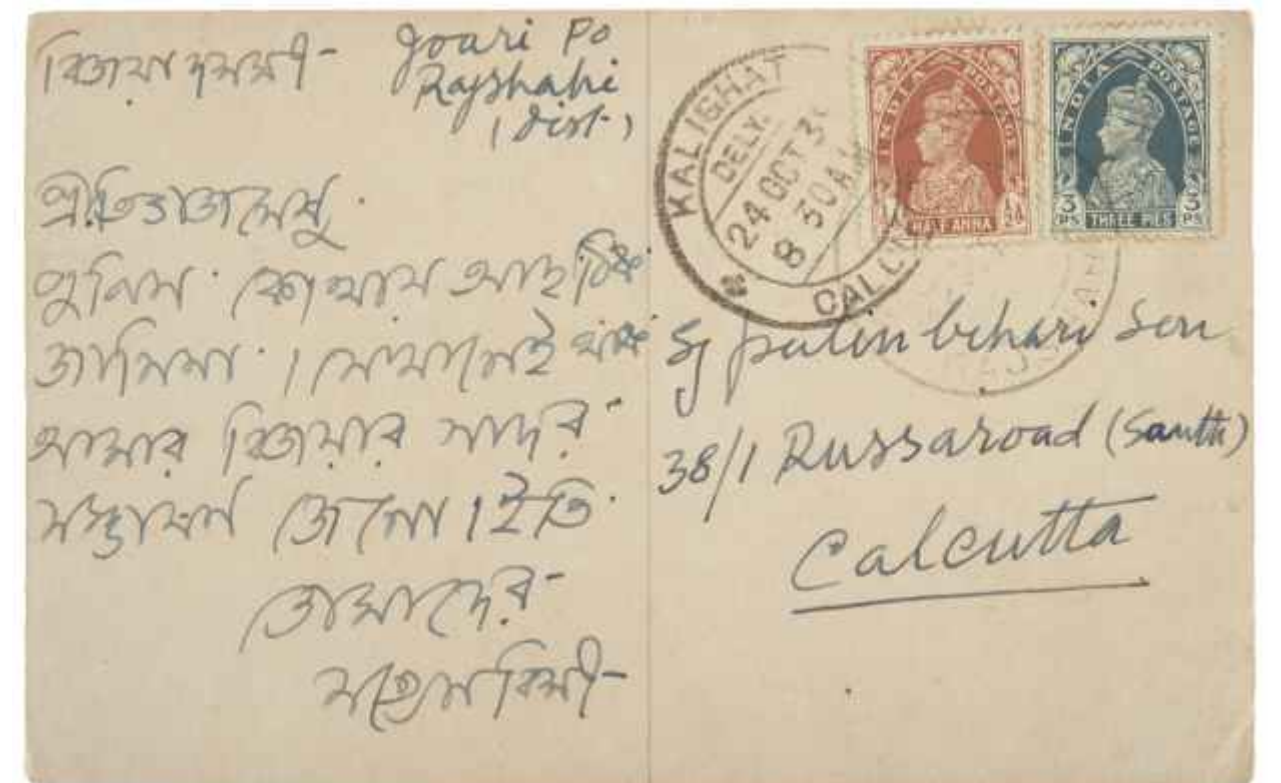 বিজয়া দশমী-
Joari Po
Rajshahi
(Dist.)
প্রীতিভাজনেষু
পুলিন কোথায় আছ ঠিক
জানিনা। যেখানেই থাক
আমার বিজয়ার সাদর
সম্ভাষণ জেনো। ইতি
তোমাদের
KALIGHAT
DELY.
24 OCT 3
8 30 AM
INDIA POSTAGE
HALF ANNA
INDIA POSTAGE
3 PS THREE PIES 3 PS
Sj pulin behari Sen
38/1 Russaroad (South)
Calcutta